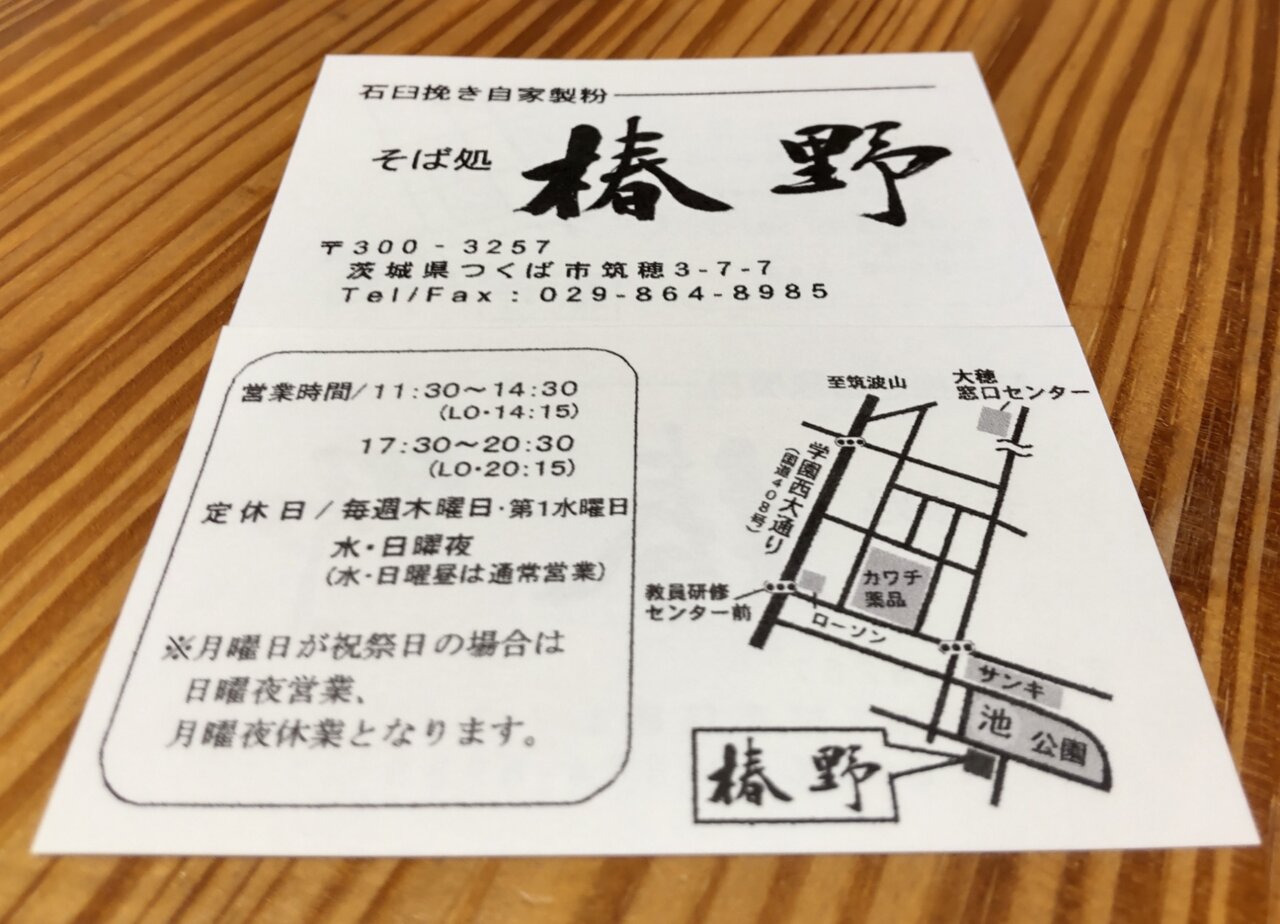 石臼挽き自家製粉
そば処 椿野
〒300-3257
茨城県つくば市筑穂3-7-7
Tel/Fax:029-864-8985
営業時間/11:30～14:30
(LO・14:15)
17:30～20:30
(LO・20:15)
定休日/毎週木曜日・第1水曜日
水・日曜夜
(水・日曜昼は通常営業)
※月曜日が祝祭日の場合は
日曜夜営業、
月曜夜休業となります。
至筑波山
大穂
窓口センター
学園西大通り
(国道408号)
カワチ
薬品
教員研修
センター前
ローソン
サンキ
池 公園
椿野